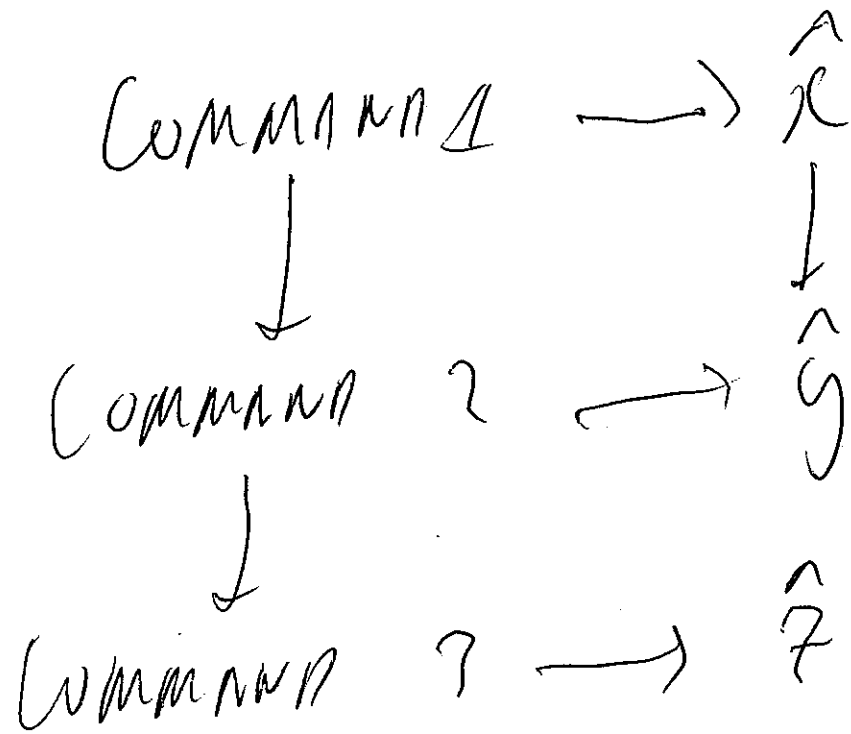 COMMAND 1 → x̂
↓ ↓
COMMAND 2 → ŷ
↓
COMMAND 3 → ẑ